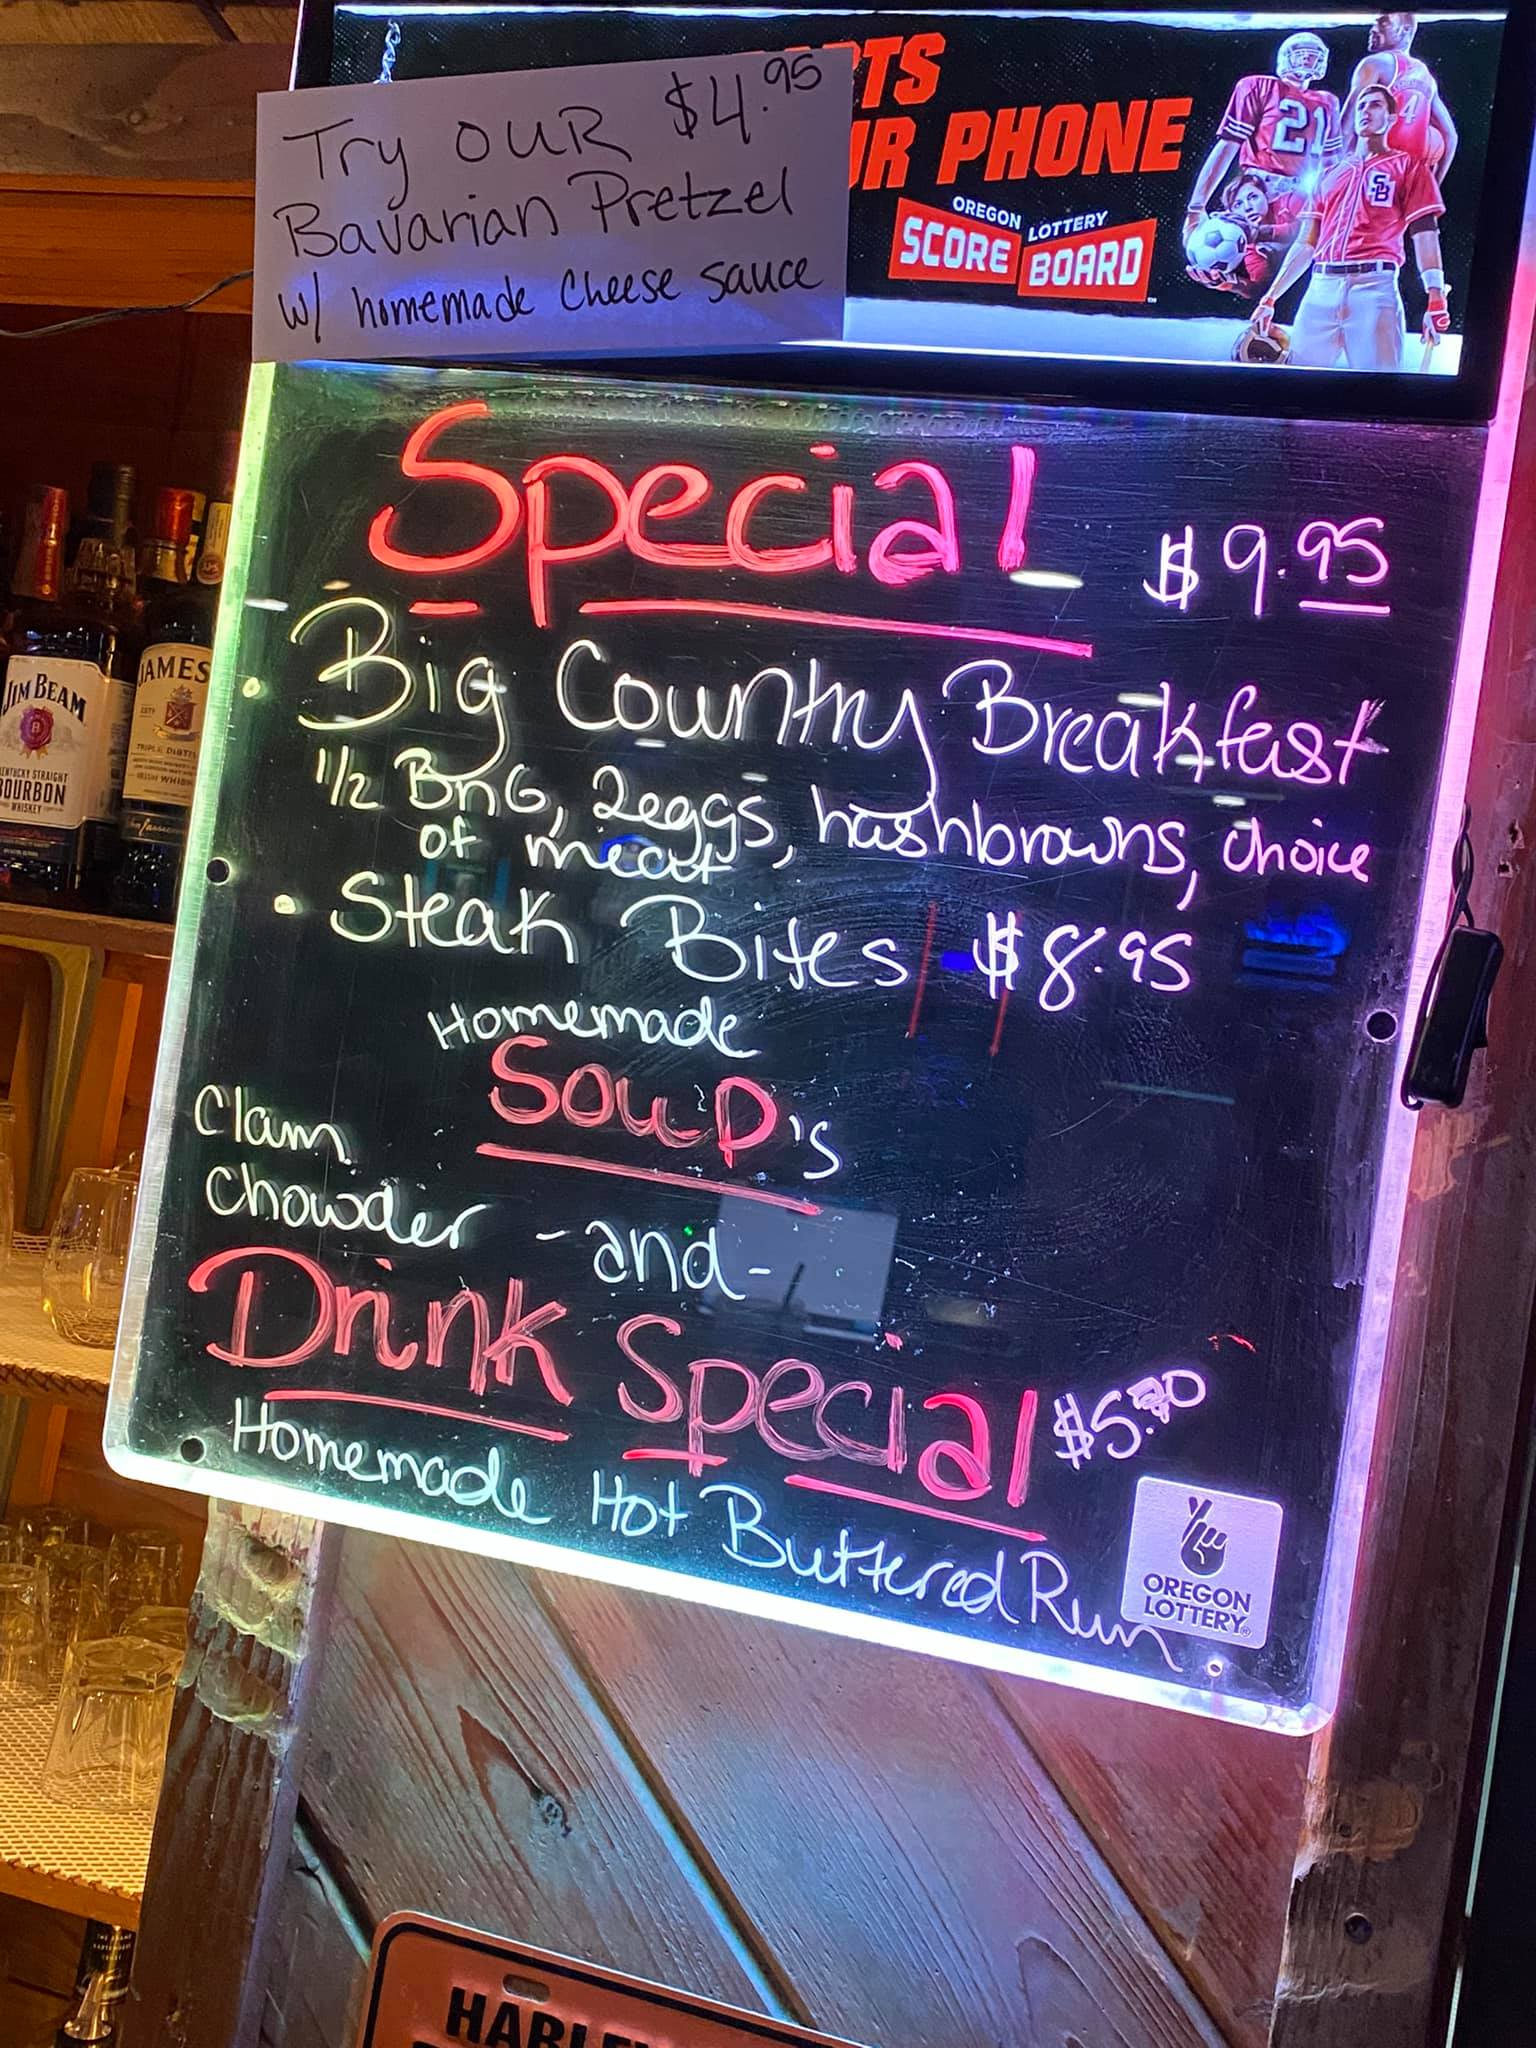 Try OUR $4.95
Bavarian Pretzel
w/ homemade cheese sauce
RTS
UR PHONE
OREGON LOTTERY
SCORE BOARD
21
4
SB
Special $9.95
• Big Country Breakfast
1/2 BnG, 2eggs, hashbrowns, choice
of meat
• Steak Bites $8.95
Homemade
Soup's
Clam
Chowder - and -
Drink Special
Homemade Hot Buttered Rum
OREGON
LOTTERY
JIM BEAM
KENTUCKY STRAIGHT
BOURBON
WHISKEY
JAMES
TRIPLE DISTI
IRISH WHIS
HARLEY